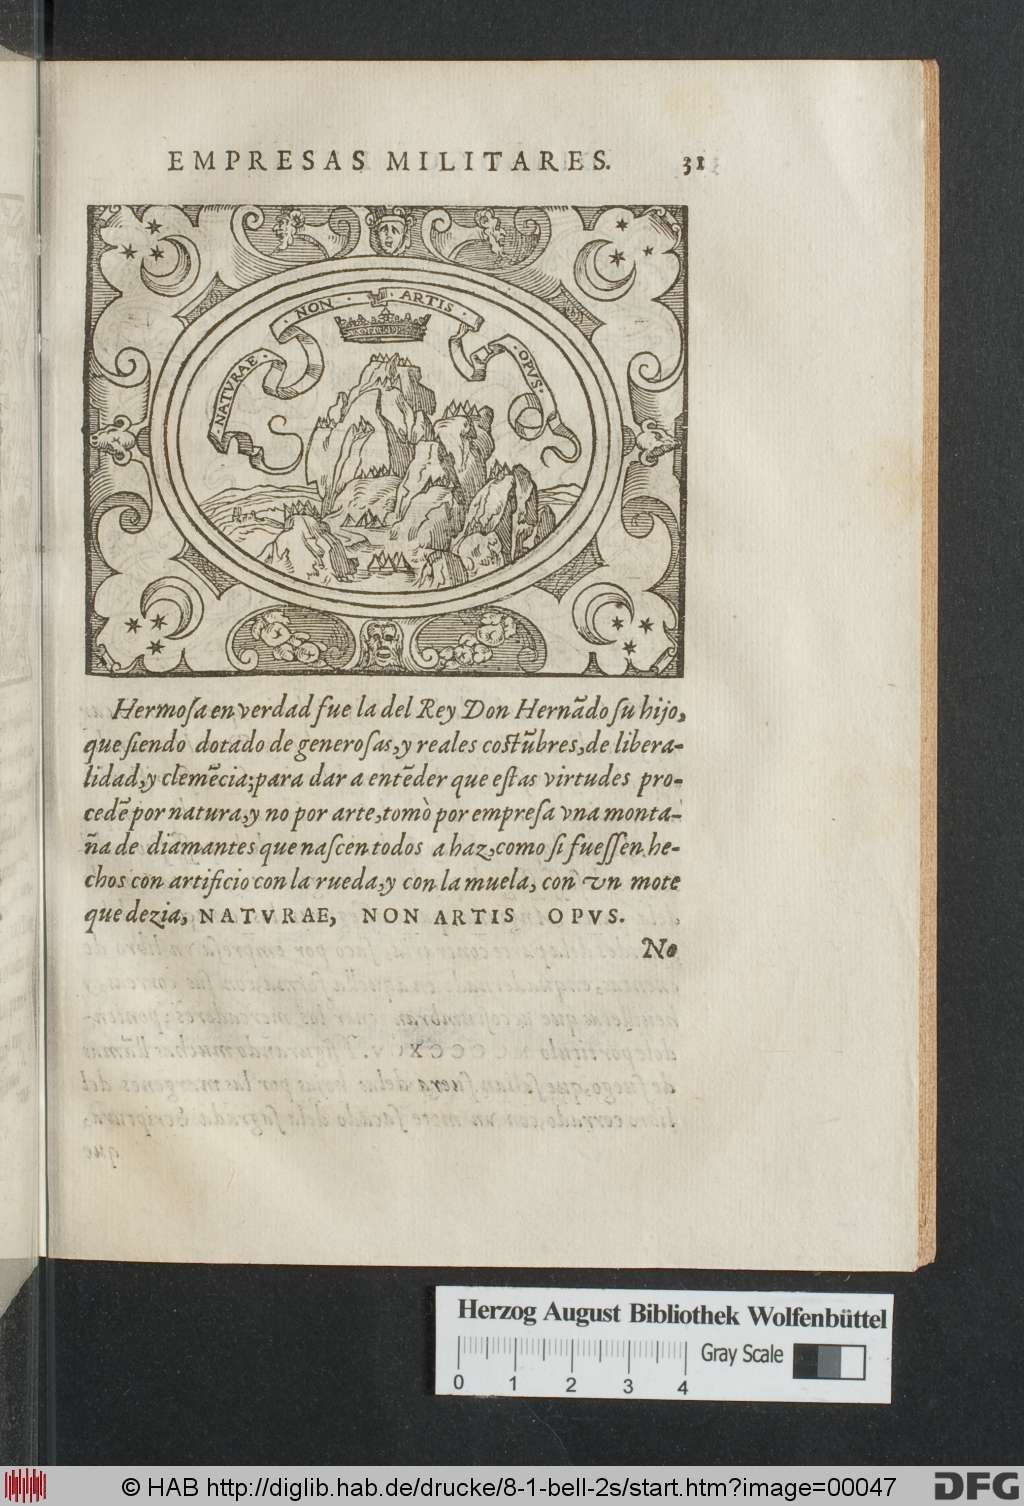 EMPRESAS MILITARES. 31
· NATVRAE · NON · ARTIS · OPVS ·
Hermoſa en verdad fue la del Rey Don Hernãdo ſu hijo,
que ſiendo dotado de generoſas, y reales coſtũbres, de libera-
lidad, y clemẽcia; para dar a entẽder que eſtas virtudes pro-
cedẽ por natura, y no por arte, tomò por empreſa vna monta-
ña de diamantes que naſcen todos a haz, como ſi fueſſen he-
chos con artificio con la rueda, y con la muela, con vn mote
que dezia, NATVRAE, NON ARTIS OPVS.
No
Herzog August Bibliothek Wolfenbüttel
Gray Scale
0 1 2 3 4
© HAB http://diglib.hab.de/drucke/8-1-bell-2s/start.htm?image=00047
DFG